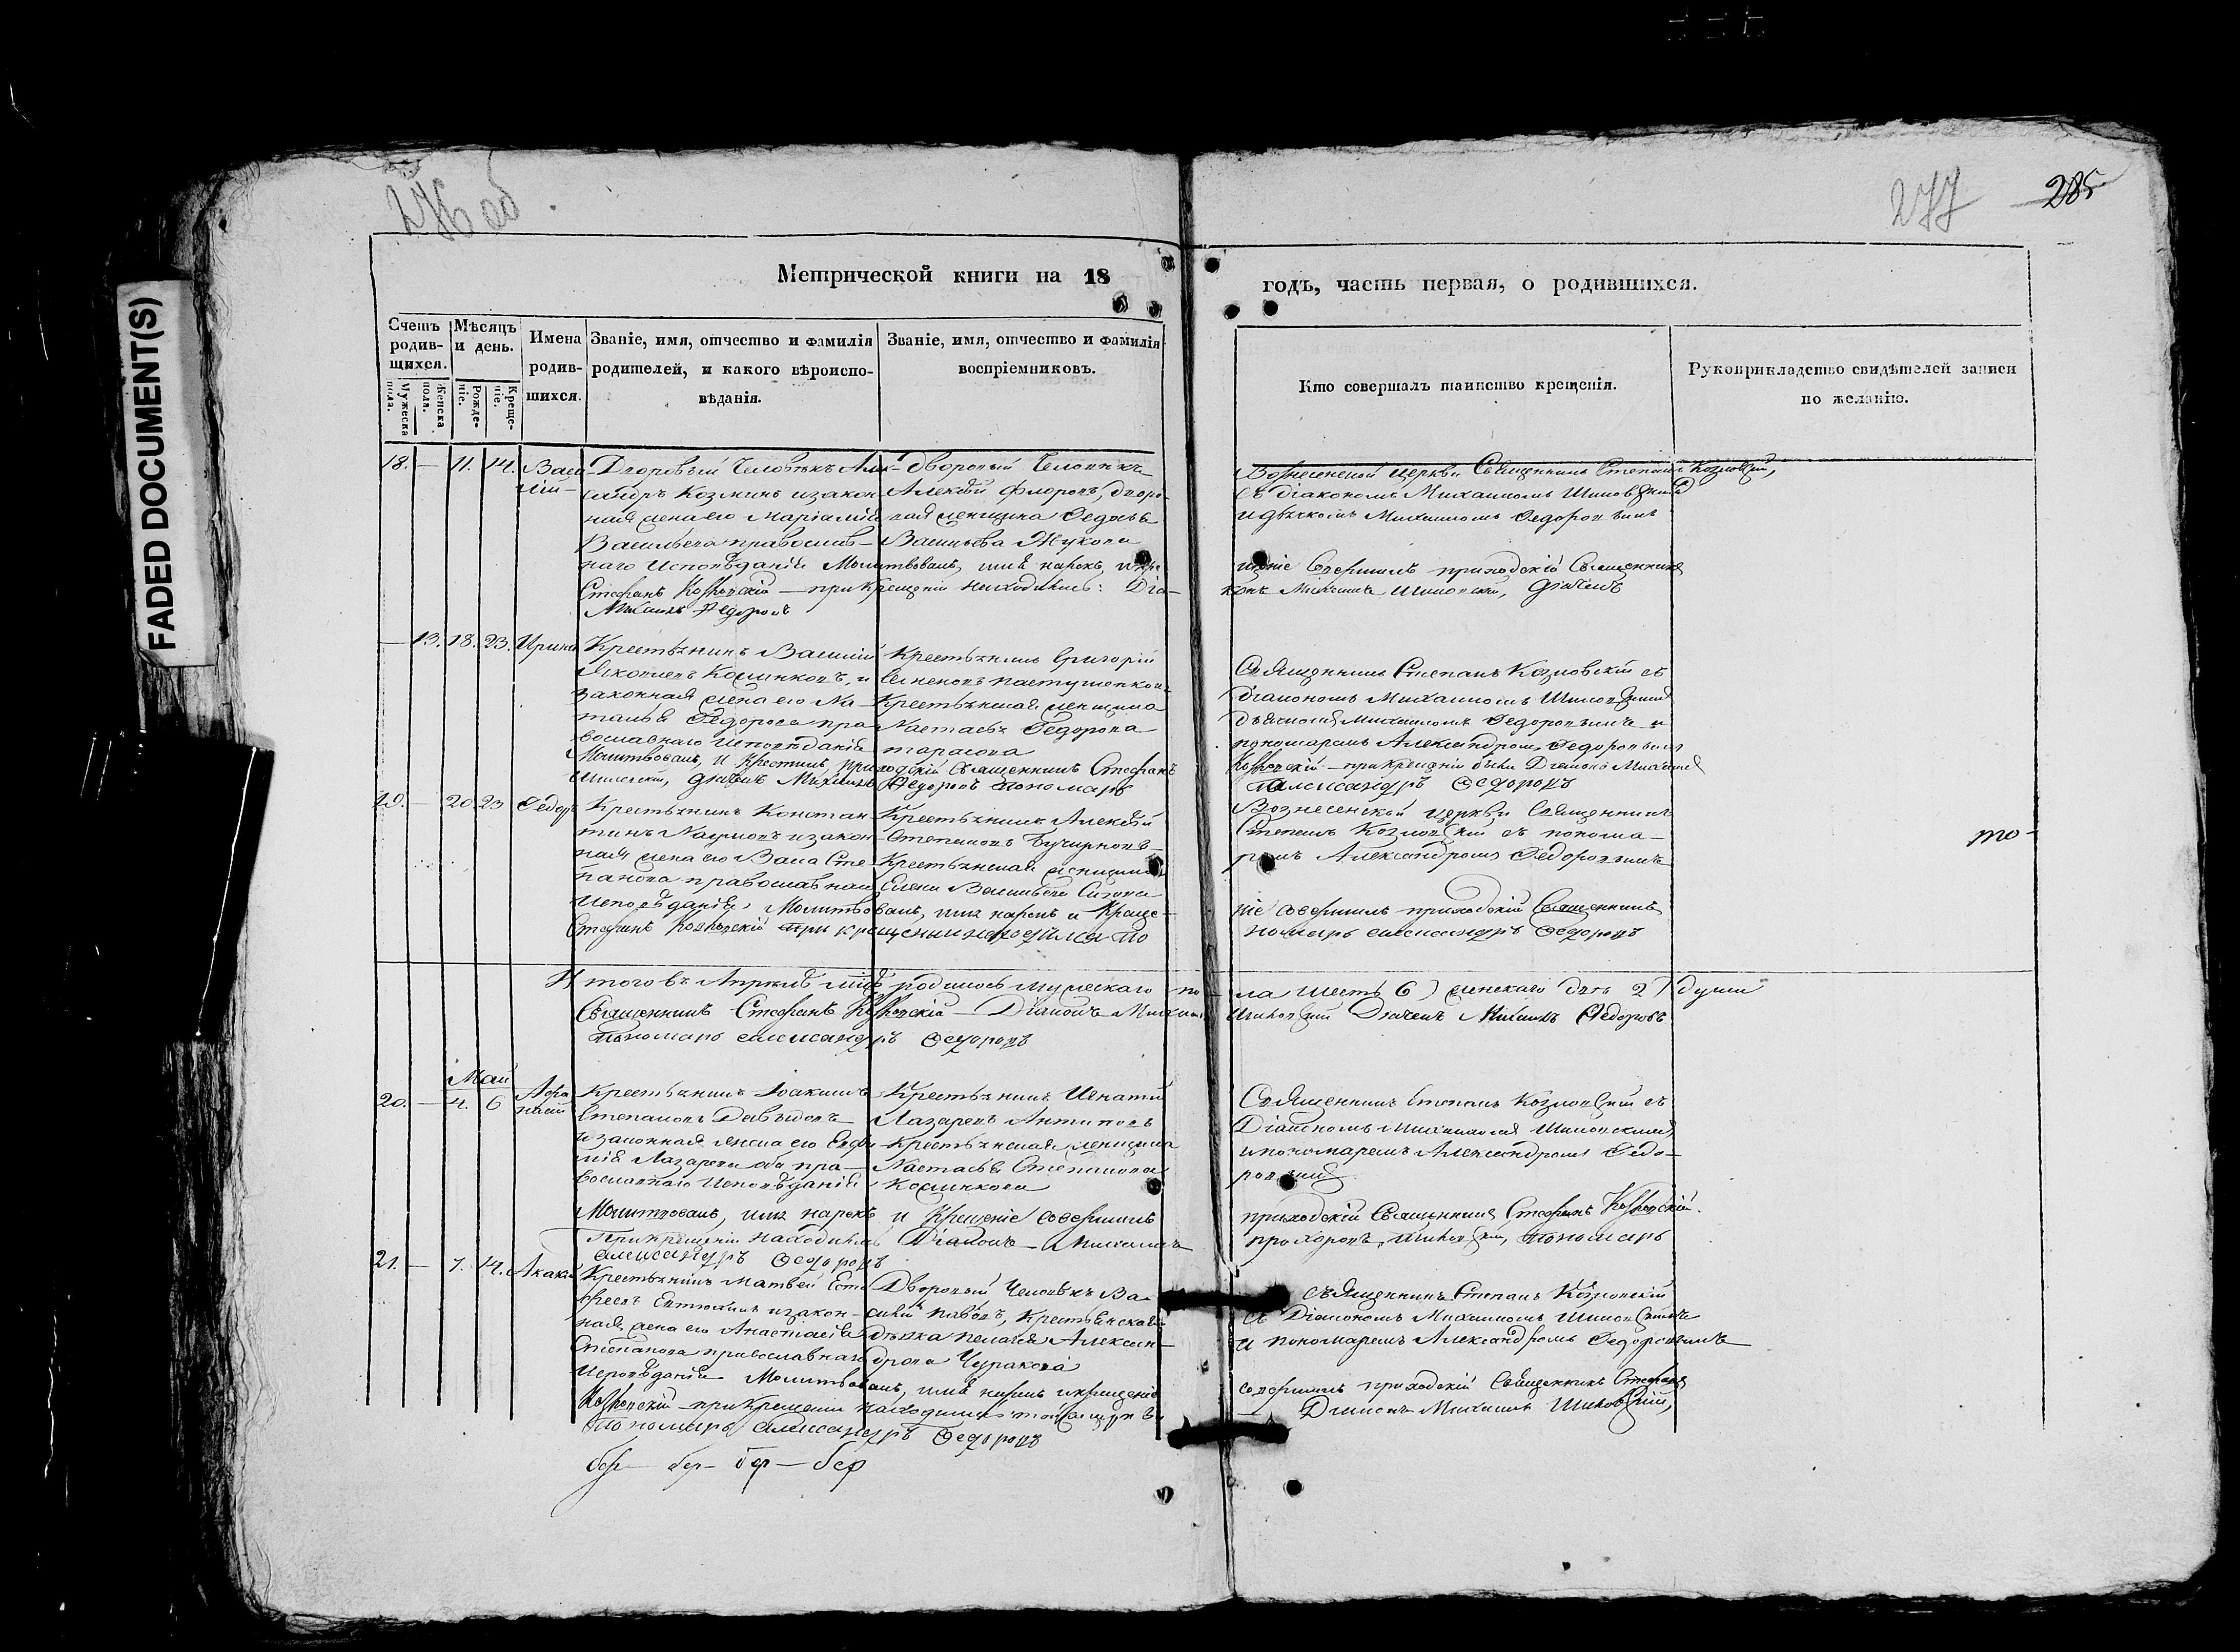 276 об
277
285
FADED DOCUMENT(S)
Метрической книги на 18
годъ, часть первая, о родившихся.
Счетъ родив-
щихся.
Мужеска пола.
Женска пола.
Мѣсяцъ
и день.
Рожде-
ніе.
Креще-
ніе.
Имена
родив-
шихся.
Званіе, имя, отчество и фамилія
родителей, и какого вѣроиспо-
вѣданія.
Званіе, имя, отчество и фамилія
воспріемниковъ.
Кто совершалъ таинство крещенія.
Рукоприкладство свидѣтелей записи
по желанію.
18. — 11. 14. Васи-
лій
Дворовый Человѣкъ Алек-
сандръ Козминъ и закон-
ная жена его Марія
Васильева православ-
наго Исповѣданія
Дворовый Человѣкъ
Алексѣй Флоровъ, дворо-
вая женщина Федосья
Васильева Жукова
Вознесенской церкви Священникъ Степанъ Козловскій,
съ діакономъ Михаиломъ
и дьячкомъ Михаиломъ Федоровымъ
Молитвовалъ, имя нарекъ, и кре-
щеніе Совершилъ приходскій Священникъ
Стефанъ Козловскій — при Крещеніи находились: Діа-
конъ Михаилъ дьячекъ
Михаилъ Федоровъ
— 13. 18. 23. Ирина
Крестьянинъ Василій
Яковлевъ и
законная жена его На-
талья Федорова пра-
вославнаго Исповѣданія
Крестьянинъ Григорій
Крестьянская женщина
Настасья Федорова
Тарасова
Священникъ Степанъ Козловскій съ
діакономъ Михаиломъ
дьячкомъ Михаиломъ Федоровымъ и
пономаремъ Александромъ Федоровымъ
Молитвовалъ, и Крестилъ приходскій Священникъ Стефанъ
Козловскій — при крещеніи были Діаконъ Михаилъ
дьячекъ Михаилъ Федоровъ пономарь
Александръ Федоровъ
19. — 20 23 Федоръ
Крестьянинъ Констан-
тинъ Наумовъ и закон-
ная жена его Васса Сте-
панова православнаго
Исповѣданія
Крестьянинъ Алексѣй
Степановъ
Крестьянская женщина
Елена Васильева
Вознесенской церкви Священникъ
Степанъ Козловскій съ понома-
ремъ Александромъ Федоровымъ
то-
Молитвовалъ, имя нарекъ и Креще-
ніе совершилъ приходскій Священникъ
Стефанъ Козловскій при крещеніи находился По
номарь Александръ Федоровъ
Итого въ Апрѣлѣ родилось мужескаго по-
ла шесть 6) женскаго двѣ 2) души
Священникъ Стефанъ Козловскій — Діаконъ Михаилъ
Дьячекъ Михаилъ Федоровъ
Пономарь Александръ Федоровъ
Май
20. — 4. 6 Афа
насій
Крестьянинъ Іоакимъ
Степановъ Давыдовъ
и законная жена его Евфи-
мія Лазарева оба пра-
вославнаго Исповѣданія
Крестьянинъ Игнатій
Лазаревъ Антиповъ
Крестьянская женщина
Настасья Степанова
Священникъ Степанъ Козловскій съ
Діакономъ Михаиломъ
и пономаремъ Александромъ Федо-
ровымъ
Молитвовалъ, имя нарекъ и Крещеніе совершилъ
приходскій Священникъ Стефанъ Козловскій.
При крещеніи находились Діаконъ Михаилъ
пономарь
Александръ Федоровъ
21. — 7. 14. Акакій
Крестьянинъ Матвей
и закон-
ная жена его Анастасія
Степанова православнаго
Исповѣданія
Дворовый Человѣкъ Ва-
силій Павловъ, Крестьянская
дѣвка Пелагея Алексан-
дрова Чуракова
Священникъ Степанъ Козловскій
съ Діакономъ Михаиломъ
и пономаремъ Александромъ Федоровымъ
Молитвовалъ, имя нарекъ и крещеніе
совершилъ приходскій Священникъ Стефанъ
Козловскій — при Крещеніи находились той церкви
Діаконъ Михаилъ
Пономарь Александръ Федоровъ